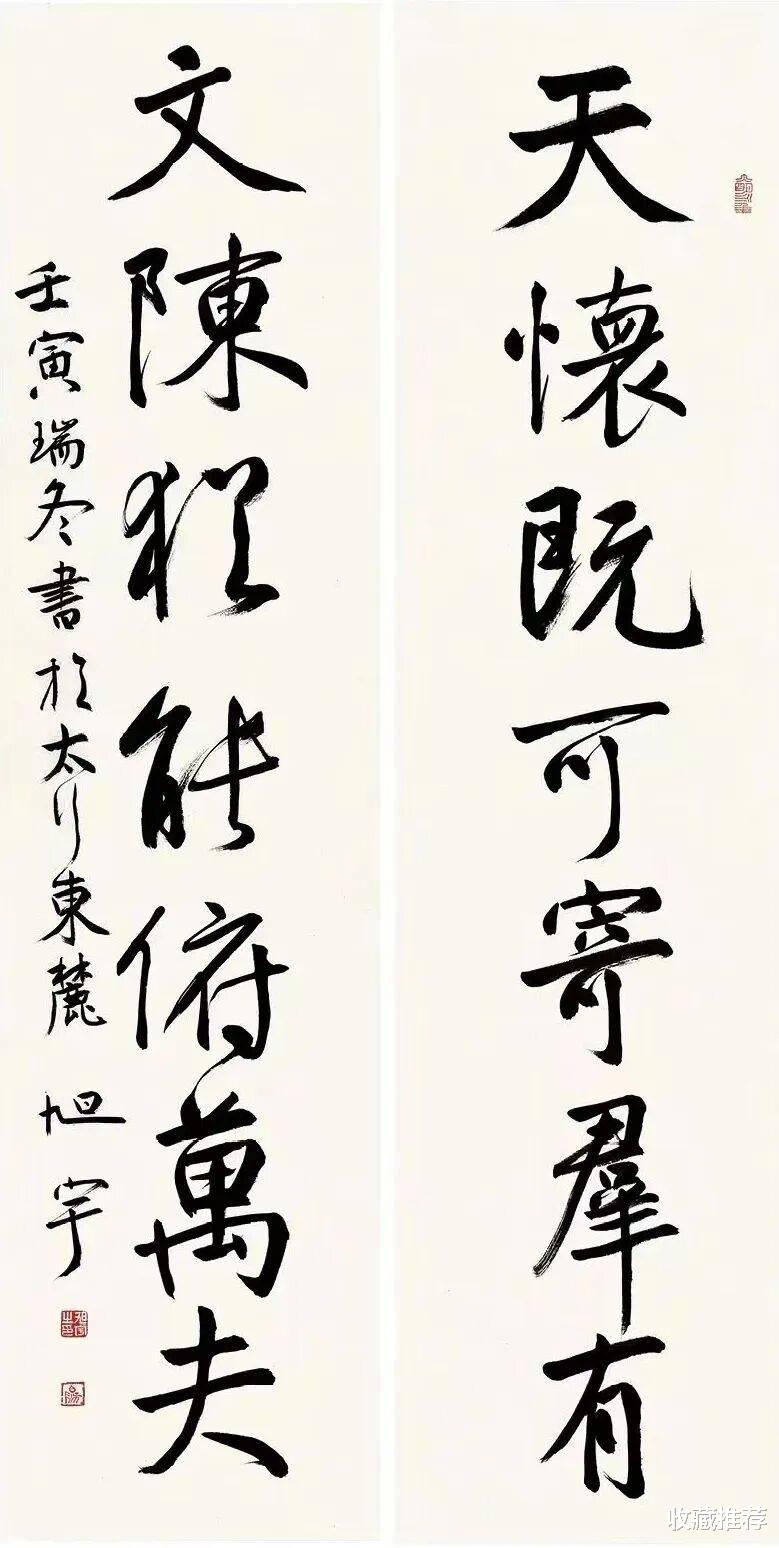 天懷既可寄羣有
文陳猶能俯萬夫
壬寅瑞冬書於太行東麓 旭宇
收藏推荐